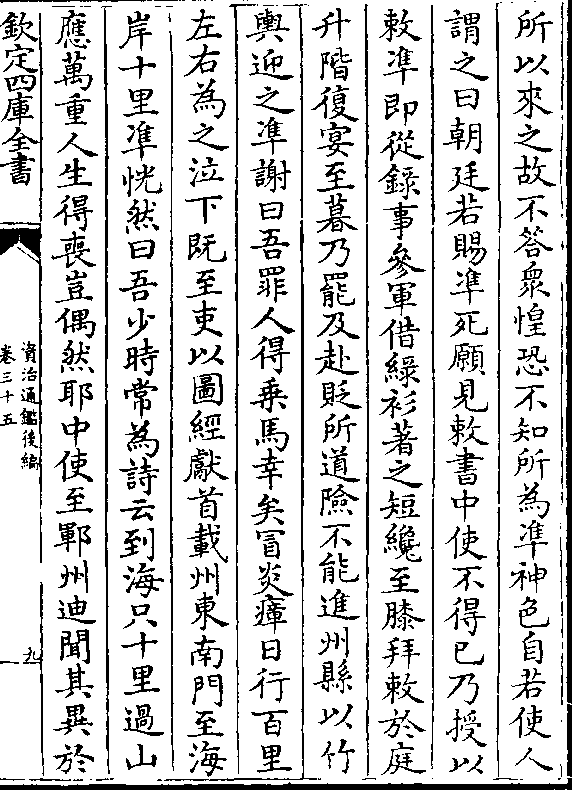 所以來之故不答衆惶恐不知所為凖神色自若使人
謂之曰朝廷若賜凖死願見敕書中使不得已乃授以
敕凖即從錄事參軍借綠衫著之短纔至膝拜敕於庭
升階復宴至暮乃罷及赴貶所道險不能進州縣以竹
輿迎之凖謝曰吾罪人得乗馬幸矣冐炎瘴日行百里
左右為之泣下既至吏以圖經獻首載州東南門至海
岸十里凖恍然曰吾少時常為詩云到海只十里過山
應萬重人生得喪豈偶然耶中使至鄆州迪聞其異於
欽定四庫全書
資治通鑑後編
卷三十五
九